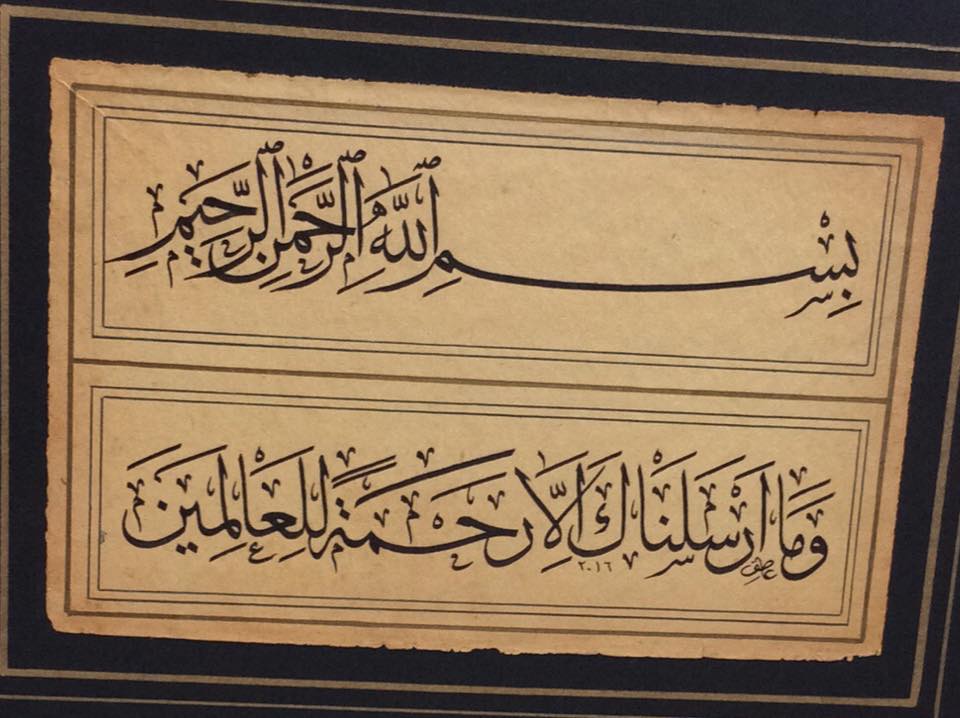 بِسْمِ ٱللَّهِ ٱلرَّحْمٰنِ ٱلرَّحِيمِ
وَمَا أَرْسَلْنَاكَ إِلَّا رَحْمَةً لِلْعَالَمِينَ
٢٠١٦